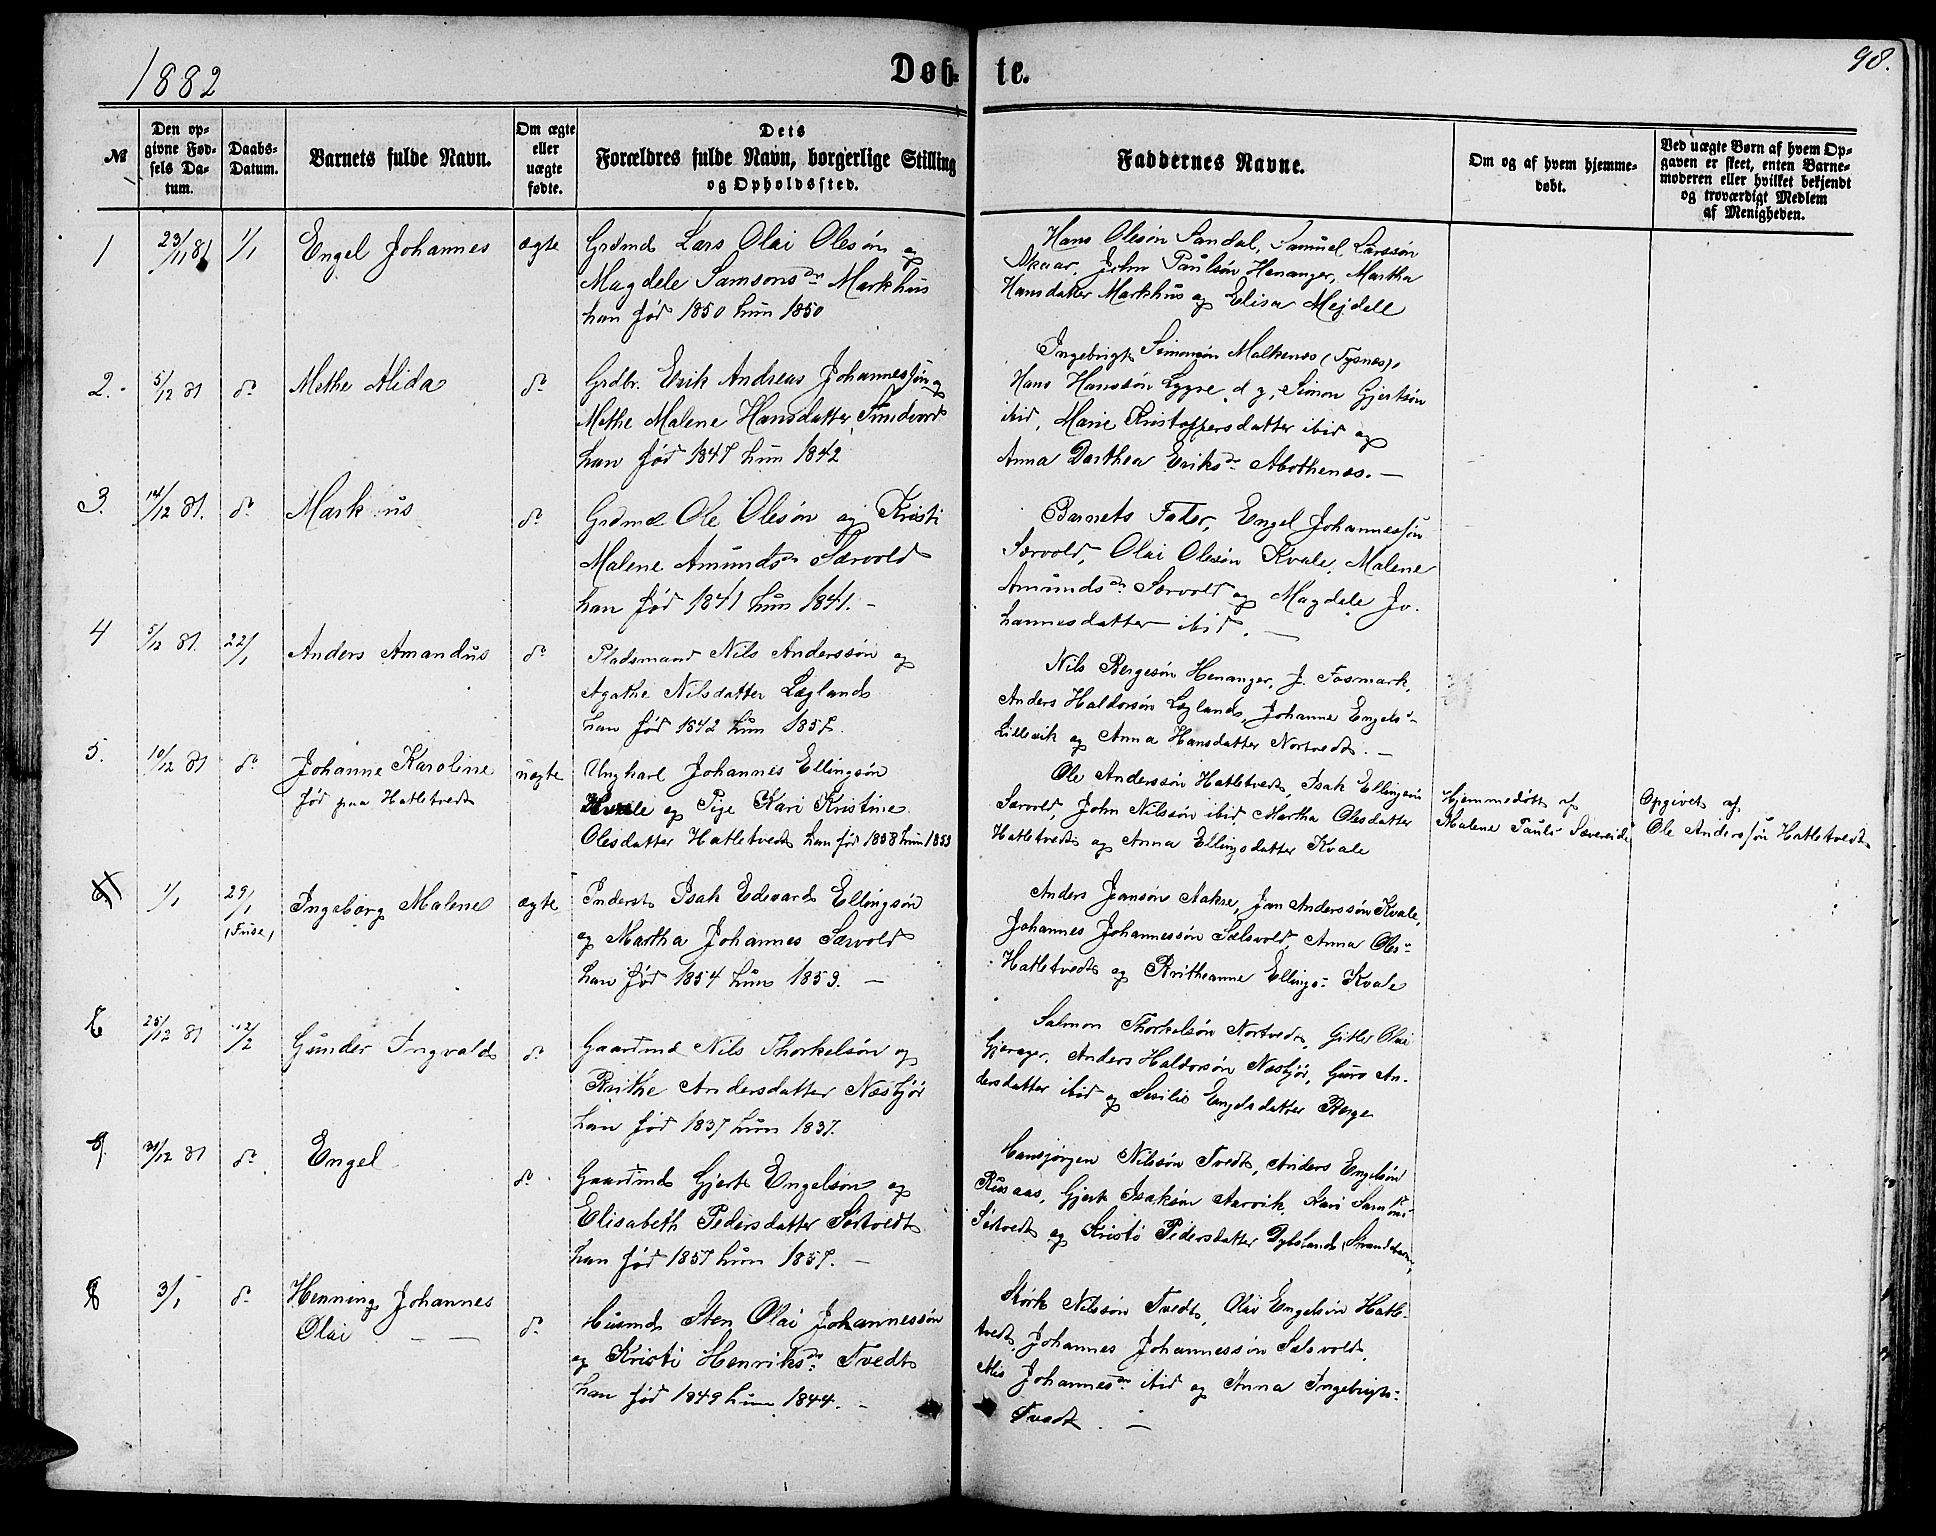 1882
Døb-
te.
98.
№
Den op-
givne Fød-
sels Da-
tum.
Daabs-
Datum.
Barnets fulde Navn.
Om ægte
eller
uægte
fødte.
Dets
Forældres fulde Navn, borgerlige Stilling
og Opholdssted.
Faddernes Navne.
Om og af hvem hjemme-
døbt.
Ved uægte Børn af hvem Op-
gaven er skeet, enten Barne-
moderen eller hvilket bekjendt
og troværdigt Medlem
af Menigheden.
1
23/11 81
1/1
Engel Johannes
ægte
Grdmd Lars Olai Olesøn og
Magdele Samsonsdr Markhus
han fød 1850 hun 1850
Hans Olesøn Sandal, Samuel Larssøn
Skaar, John Paulsøn Henanger, Martha
Hansdatter Markhus og Elisa Mejdell
2.
5/12 81
do
Methe Alida
do
Grdbr. Erik Andreas Johannessøn og
Methe Malene Hansdatter
han fød 1847 hun 1842
Ingebrigt Simonsøn Malkenes (Tysnes),
Hans Hanssøn Lygre, d y, Simon Gjertsøn
ibid, Marie Kristoffersdatter ibid og
Anna Dorthea Eriksdr
3.
14/12 81.
do
Markus
do
Grdmd Ole Olesøn og Kristi
Malene Amundsdr Særvold
han fød 1841 hun 1841. -
Barnets Fader, Engel Johannessøn
Særvold, Olai Olesøn Kvale, Malene
Amundsdr Særvold og Magdele Jo-
hannesdatter ibid. -
4
5/12 81.
22/1
Anders Amandus
do
Pladsmand Nils Anderssøn og
Agathe Nilsdatter Lægland
han fød 1842 hun 1857.
Nils Bergesøn Henanger, J. Fosmark,
Anders Haldorsøn Lægland, Johanne Engels-
Lillevik og Anna Hansdatter Nortvedt. -
5.
10/12 81
do
Johanne Karoline
fød paa Hatletvedt
uægte
Ungkarl Johannes Ellingsøn
Kvale og Pige Kari Kristine
Olesdatter Hatletvedt han fød 1858 hun 1853
Ole Anderssøn Hatletvedt, Isak Ellingsøn
Særvold, John Nilssøn ibid Martha Olesdatter
Hatletvedt og Anna Ellingsdatter Kvale
Hjemmedøbt af
Malene Pauls- Sævereide
Opgivet af
Ole Anderssøn Hatletvedt
1/1
29/1
(Fuse)
Ingeborg Malene
ægte
Inderst Isak Edvard Ellingsøn
og Martha Johannes Særvold
han fød 1854 hun 1853. -
Anders Jansøn Aakre, Jan Anderssøn Kvale,
Johannes Johannessøn Sælsvold, Anna Ols-
Hatletvedt og Britheanne Ellings- Kvale
25/12 81
12/2
Gunder Ingvald
do
Gaardmd Nils Thorkelsøn og
Brithe Andersdatter Næsbjør
han fød 1837 hun 1837.
Salmon Thorkelsøn Nortvedt, Gitle Olai
Gjerager, Anders Haldorsøn Næsbjør, Guro An-
dersdatter ibid og Sesilie Engelsdatter Berge
31/12 81
do
Engel
do
Gaardmd Gjert Engelsøn og
Elisabeth Pedersdatter Sørtvedt
han fød 1857 hun 1857. -
Hansjørgen Nilssøn Tvedt, Anders Engelsøn
Rusaas, Gjert Isaksøn Aarvik, Kari Samsons-
Sørtvedt og Kristi Pedersdatter Dybsland (Strandebarm)
8
3/1
do
Henning Johannes
Olai
do
Husmd Sten Olai Johannessøn
og Kristi Henriksdr Tvedt
han fød 1849 hun 1844. -
Størk Nilssøn Tvedt, Olai Engelsøn Hatle-
tvedt, Johannes Johannessøn Sælsvold,
Johannesdr ibid og Anna Ingebrigts-
Tvedt. -